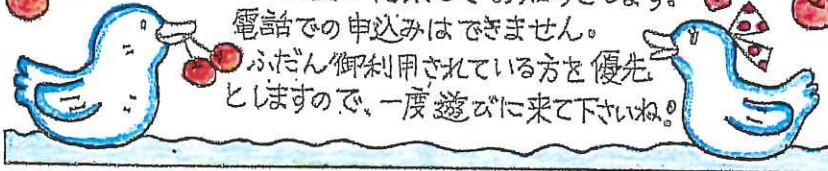 お知らせします。
電話での申込みはできません。
ふだん御利用されている方を優先
としますので、一度遊びに来て下さいね。